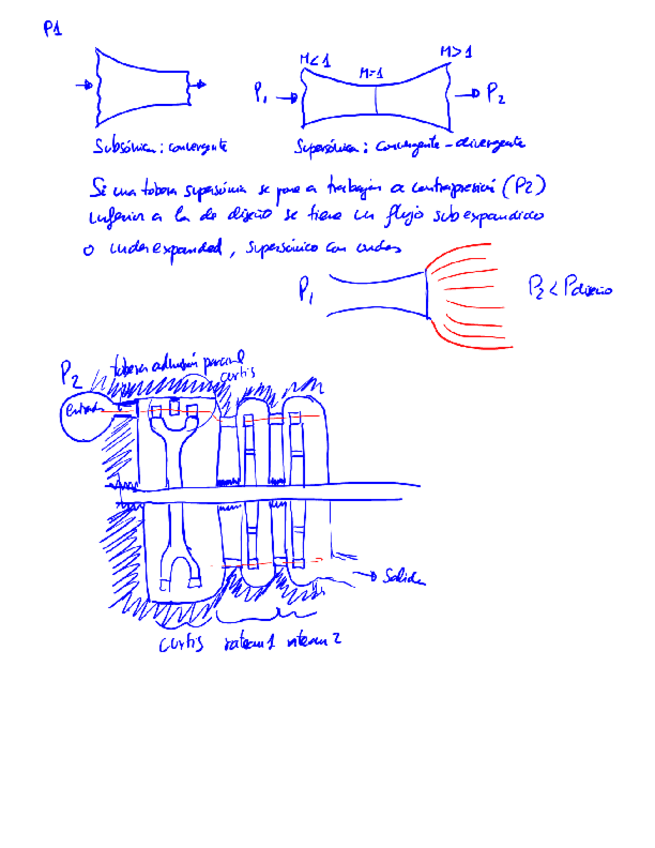 P1
M<1
M=1
M>1
P1
P2
Subsónica: convergente
Supersónica: convergente-divergente
Si una tobera supersónica se pone a trabajar a contrapresión (P2)
inferior a la de diseño se tiene un flujo subexpandido
o underexpanded, supersónico con ondas
P1
P2 < Pdiseño
P2
tobera admisión parcial
curtis
entrada
Salida
curtis rateau 1 rateau 2